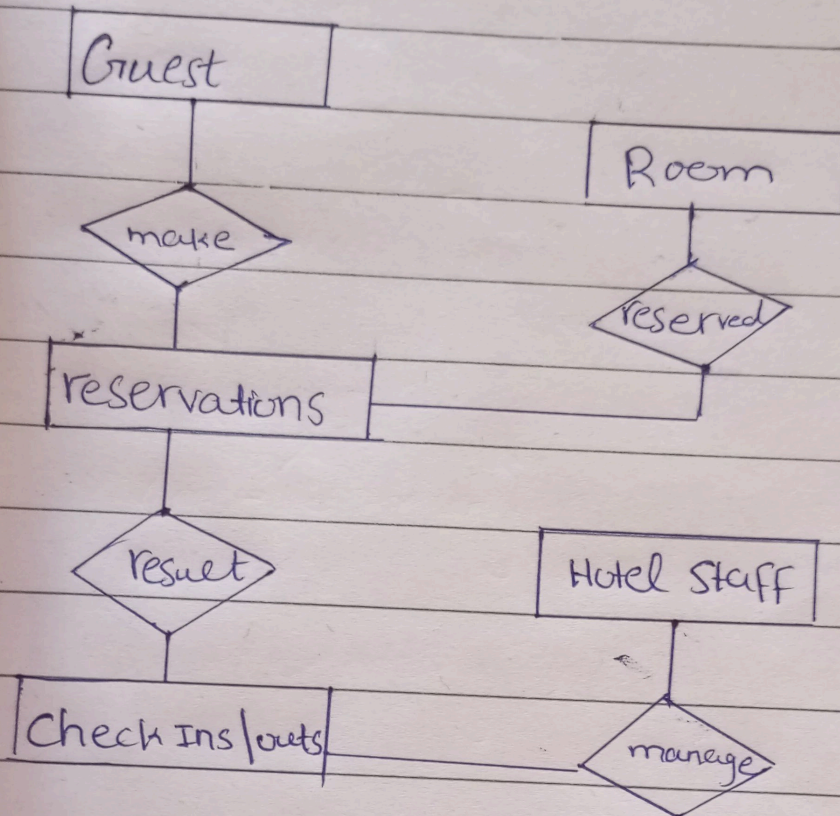 Guest
Room
make
reserved
reservations
result
Hotel Staff
Check Ins/outs
manage